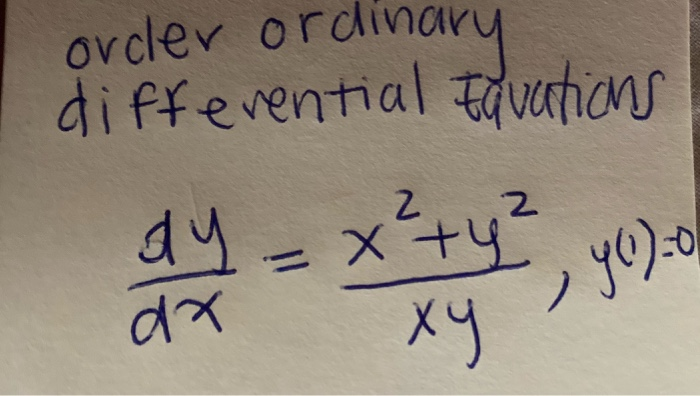 order ordinary
differential Equations
dy/dx = x²+y²/xy, y(1)=0